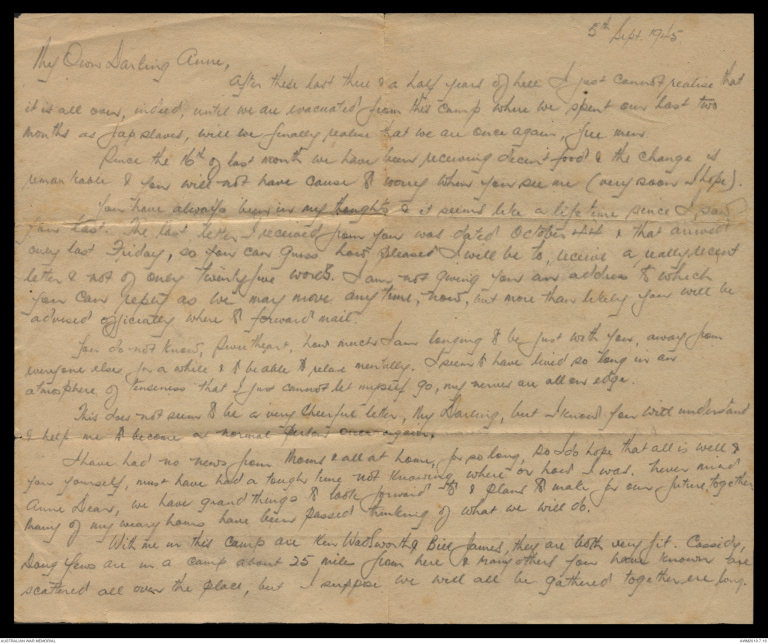 5th Sept. 1945
My Own Darling Anne,
After these last three & a half years of hell I just cannot realise that
it is all over, indeed, until we are evacuated from this camp where we spent our last two
months as Jap slaves, will we finally realise that we are once again, free men
Since the 16th of last month we have been receiving decent food & the change is
remarkable & you will not have cause to worry when you see me (very soon I hope).
You have always been in my thoughts & it seems like a life time since I saw
you last. The last letter I received from you was dated October & that arrived
only last Friday, so you can guess how pleased I will be to, receive a really, decent
letter & not of only twenty five words. I am not giving you an address to which
you can reply as we may move any time, now, but more than likely you will be
advised officially where to forward mail.
You do not know, Sweetheart, how much I am longing to be just with you, away from
everyone else for a while & to be able to relax mentally. I seem to have lived so long in an
atmosphere of tenseness that I just cannot let myself go, my nerves are all on edge.
This does not seem to be a very cheerful letter, My Darling, but I know you will understand
& help me to become a normal person once again.
I have had no news from Moms & all at home, for so long, so I do hope that all is well &
you yourself, must have had a tough time not knowing where or how I was. Never mind
Anne Dear, we have grand things to look forward to & plans to make for our future, together
Many of my weary hours have been passed thinking of what we will do.
With me in this camp are Ken Wadsworth & Bill James, they are both very fit. Cassidy,
Doug Yews are in a camp about 25 miles from here & many others you have known are
scattered all over the place, but I suppose we will all be gathered together ere long.
AUSTRALIAN WAR MEMORIAL